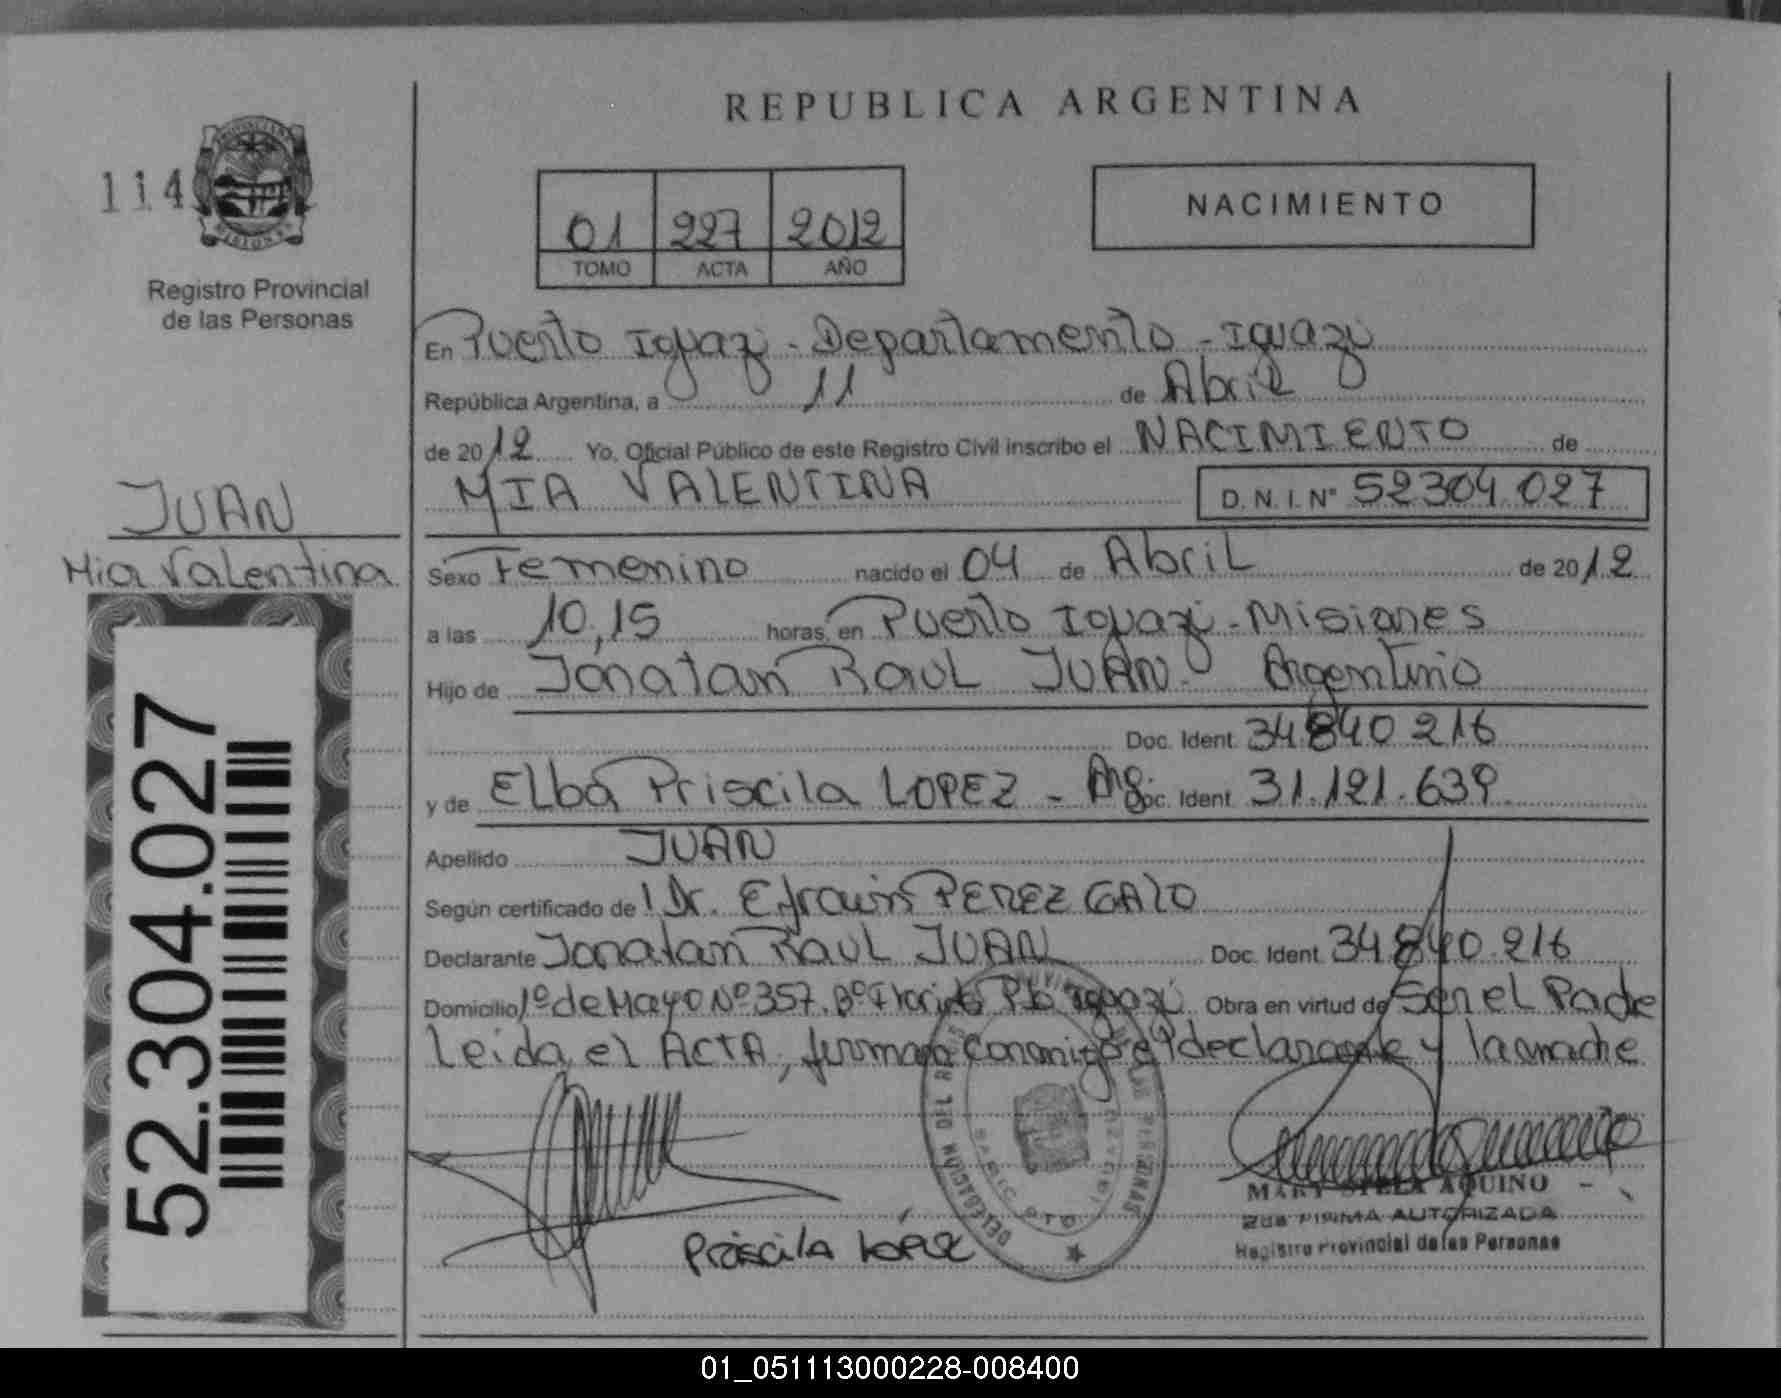 REPUBLICA ARGENTINA
114
PROVINCIA DE
MISIONES
Registro Provincial
de las Personas
01 227 2012
TOMO ACTA AÑO
NACIMIENTO
En Puerto Iguazú - Departamento - Iguazú
República Argentina, a 11 de Abril
de 2012 Yo, Oficial Público de este Registro Civil inscribo el NACIMIENTO de
MIA VALENTINA D. N. I. N° 52304.027
JUAN
Mia Valentina
Sexo Femenino nacido el 04 de Abril de 2012
a las 10,15 horas, en Puerto Iguazú - Misiones
Hijo de Jonatan Raul JUAN - Argentino
Doc. Ident. 34840216
y de Elba Priscila LOPEZ - Arg. Doc. Ident. 31.121.639
Apellido JUAN
Según certificado de Dr. Efrain PEREZ GALO
Declarante Jonatan Raul JUAN Doc. Ident. 34.840.216
Domicilio 1º de Mayo Nº 357. Bº Pto Iguazú Obra en virtud de Ser el Padre
Leida el ACTA, firman conmigo el declarante y la madre
52.304.027
DELEGACION DEL PERSONAS
Priscila LOPEZ
MARY STELA AQUINO
2da FIRMA AUTORIZADA
Registro Provincial de las Personas
01_051113000228-008400